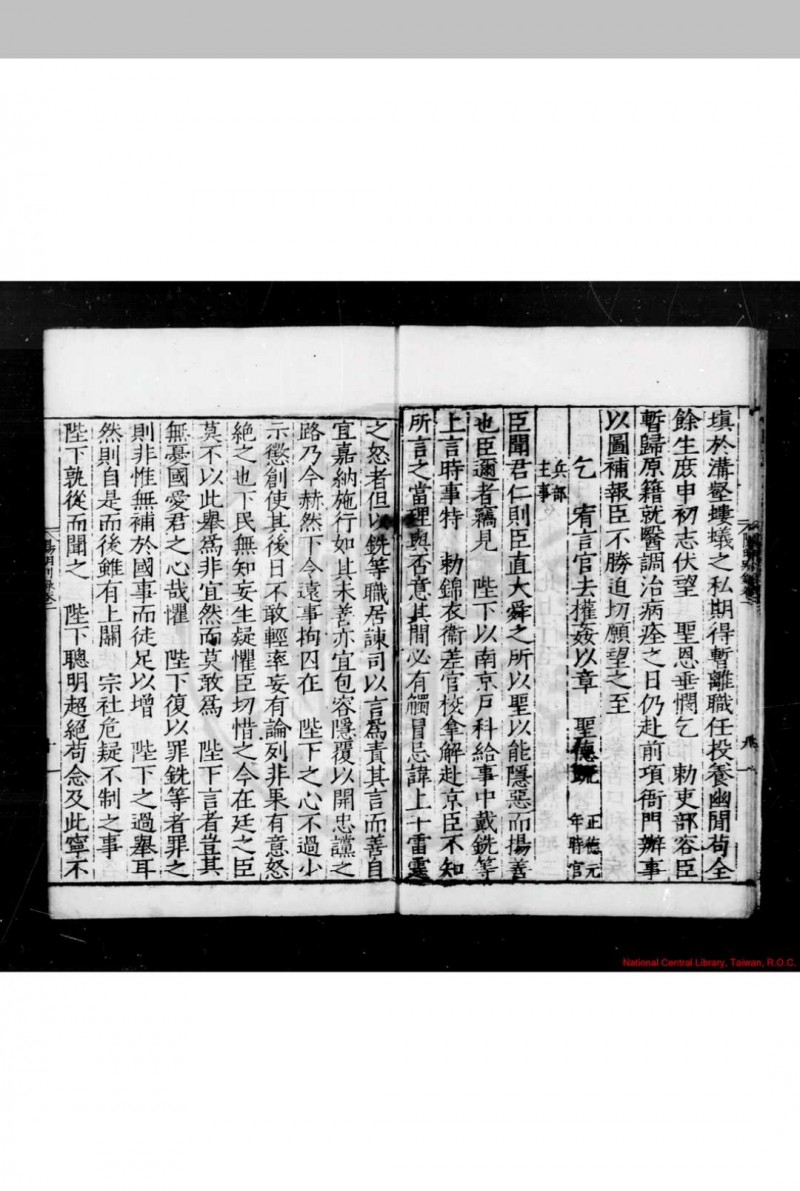 填於溝壑螻蟻之私期得暫離職任投養幽閒苟全
餘生庶申初志伏望　聖恩垂憫乞　勅吏部容臣
暫歸原籍就醫調治病痊之日仍赴前項衙門辦事
以圖補報臣不勝迫切願望之至
乞　宥言官去權姦以章　聖德疏　正德元年時官兵部主事
臣聞君仁則臣直大舜之所以聖以能隱惡而揚善
也臣邇者竊見　陛下以南京戶科給事中戴銑等
上言時事特　勅錦衣衛差官校拿解赴京臣不知
所言之當理與否意其間必有觸冒忌諱上干雷霆
之怒者但以銑等職居諫司以言爲責其言而善自
宜嘉納施行如其未善亦宜包容隱覆以開忠讜之
路乃今赫然下令遠事拘囚在　陛下之心不過少
示懲創使其後日不敢輕率妄有論列非果有意怒
絶之也下民無知妄生疑懼臣切惜之今在廷之臣
莫不以此舉爲非宜然而莫敢爲　陛下言者豈其
無憂國愛君之心哉懼　陛下復以罪銑等者罪之
則非惟無補於國事而徒足以增　陛下之過舉耳
然則自是而後雖有上關　宗社危疑不制之事
陛下孰從而聞之　陛下聰明超絶苟念及此寧不
National Central Library, Taiwan, R.O.C.